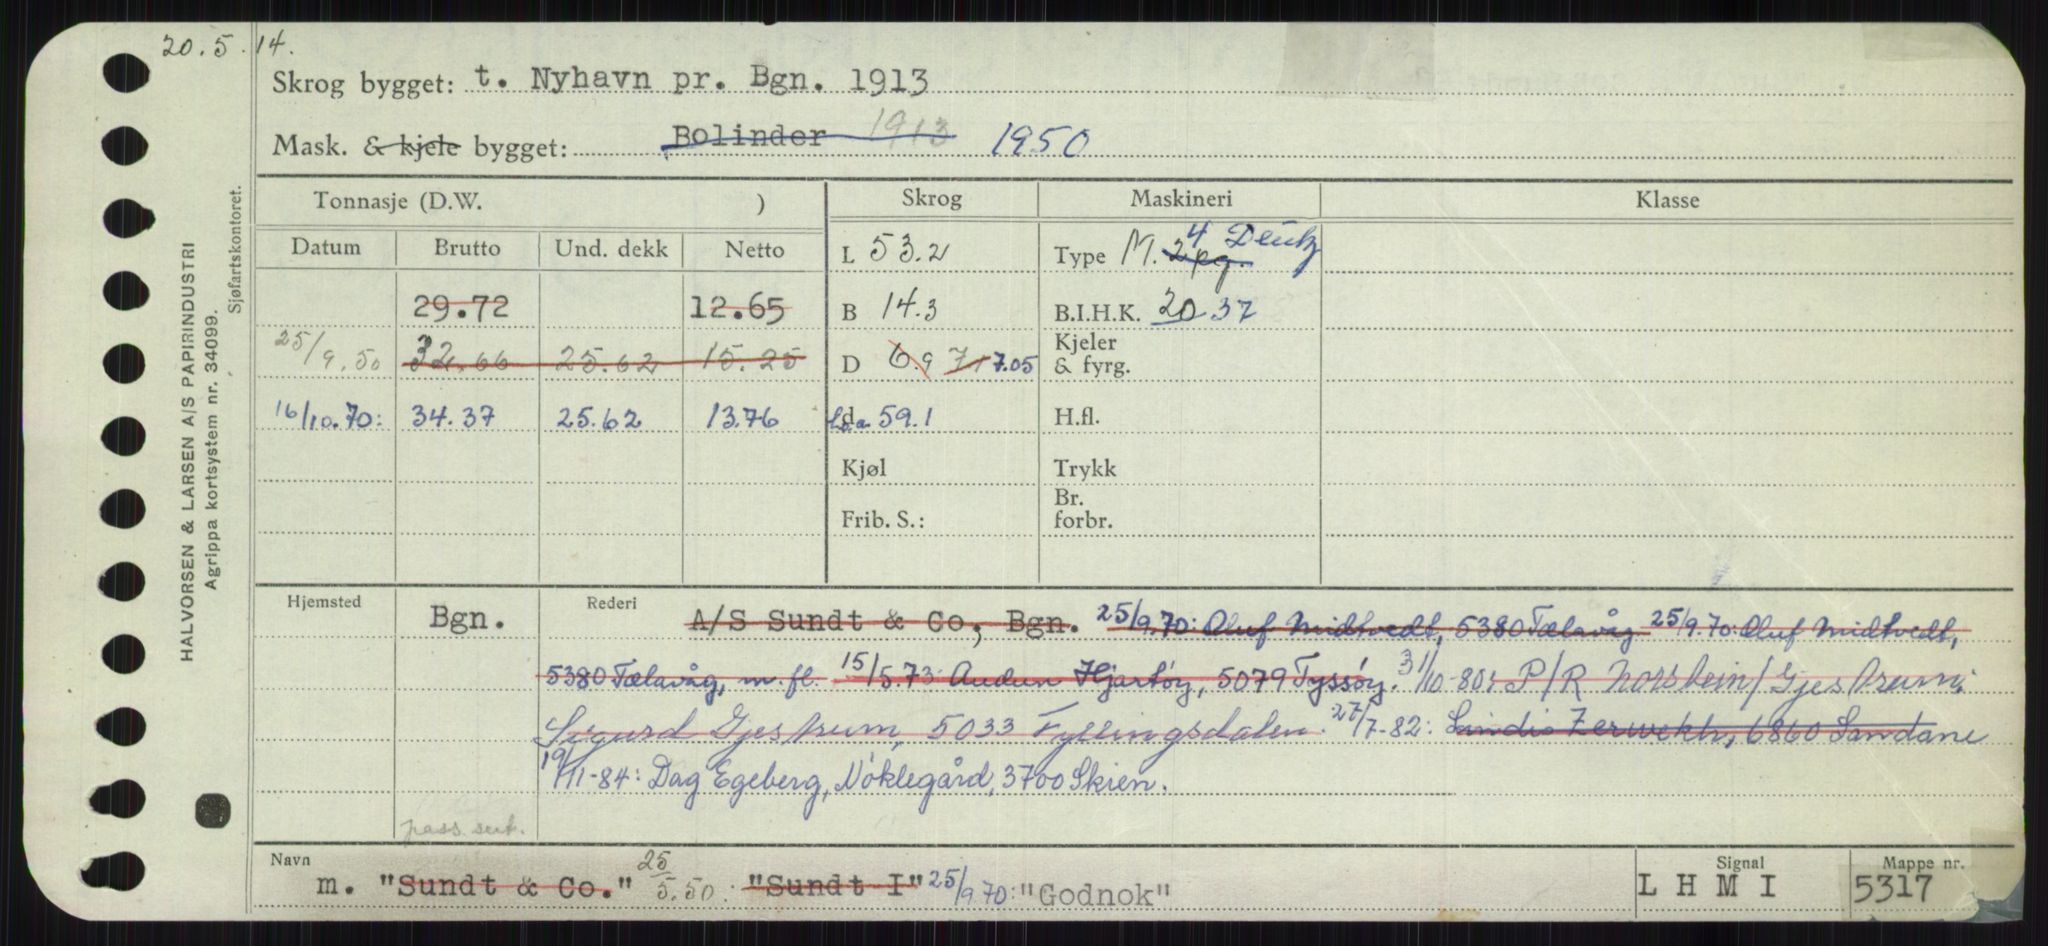 20.5.14.
Skrog bygget: t. Nyhavn pr. Bgn. 1913
Mask. & kjele bygget: Bolinder 1913 1950
Tonnasje (D.W. ) Skrog Maskineri Klasse
Datum Brutto Und. dekk Netto L 53.2 Type M. 2 pg. 4 Deutz
29.72 12.65 B 14.3 B.I.H.K. 20 37
25/9.50 32.66 25.62 15.25 D 6.9 7.1 7.05 Kjeler & fyrg.
16/10.70: 34.37 25.62 13.76 d L.o.a. 59.1 H.fl.
Kjøl Trykk
Frib. S.: Br. forbr.
Hjemsted Bgn. Rederi A/S Sundt & Co, Bgn. 25/9.70: Oluf Midtvedt, 5380 Tælavåg 25/9.70: Oluf Midtvedt,
5380 Tælavåg, m. fl. 15/5.73: Audun Hjartøy, 5079 Tyssøy. 31/10-80: P/R Norstein/Gjestrum:
Sigurd Gjestrum, 5033 Fyllingsdalen. 27/7-82: Sindis Zerwekh, 6860 Sandane
19/11-84: Dag Egeberg, Nøklegård, 3700 Skien.
pass. sert.
Navn m. "Sundt & Co." 25/5.50. "Sundt I" 25/9.70: "Godnok" Signal L H M I Mappe nr. 5317
HALVORSEN & LARSEN A/S PAPIRINDUSTRI
Agrippa kortsystem nr. 34099.
Sjøfartskontoret.